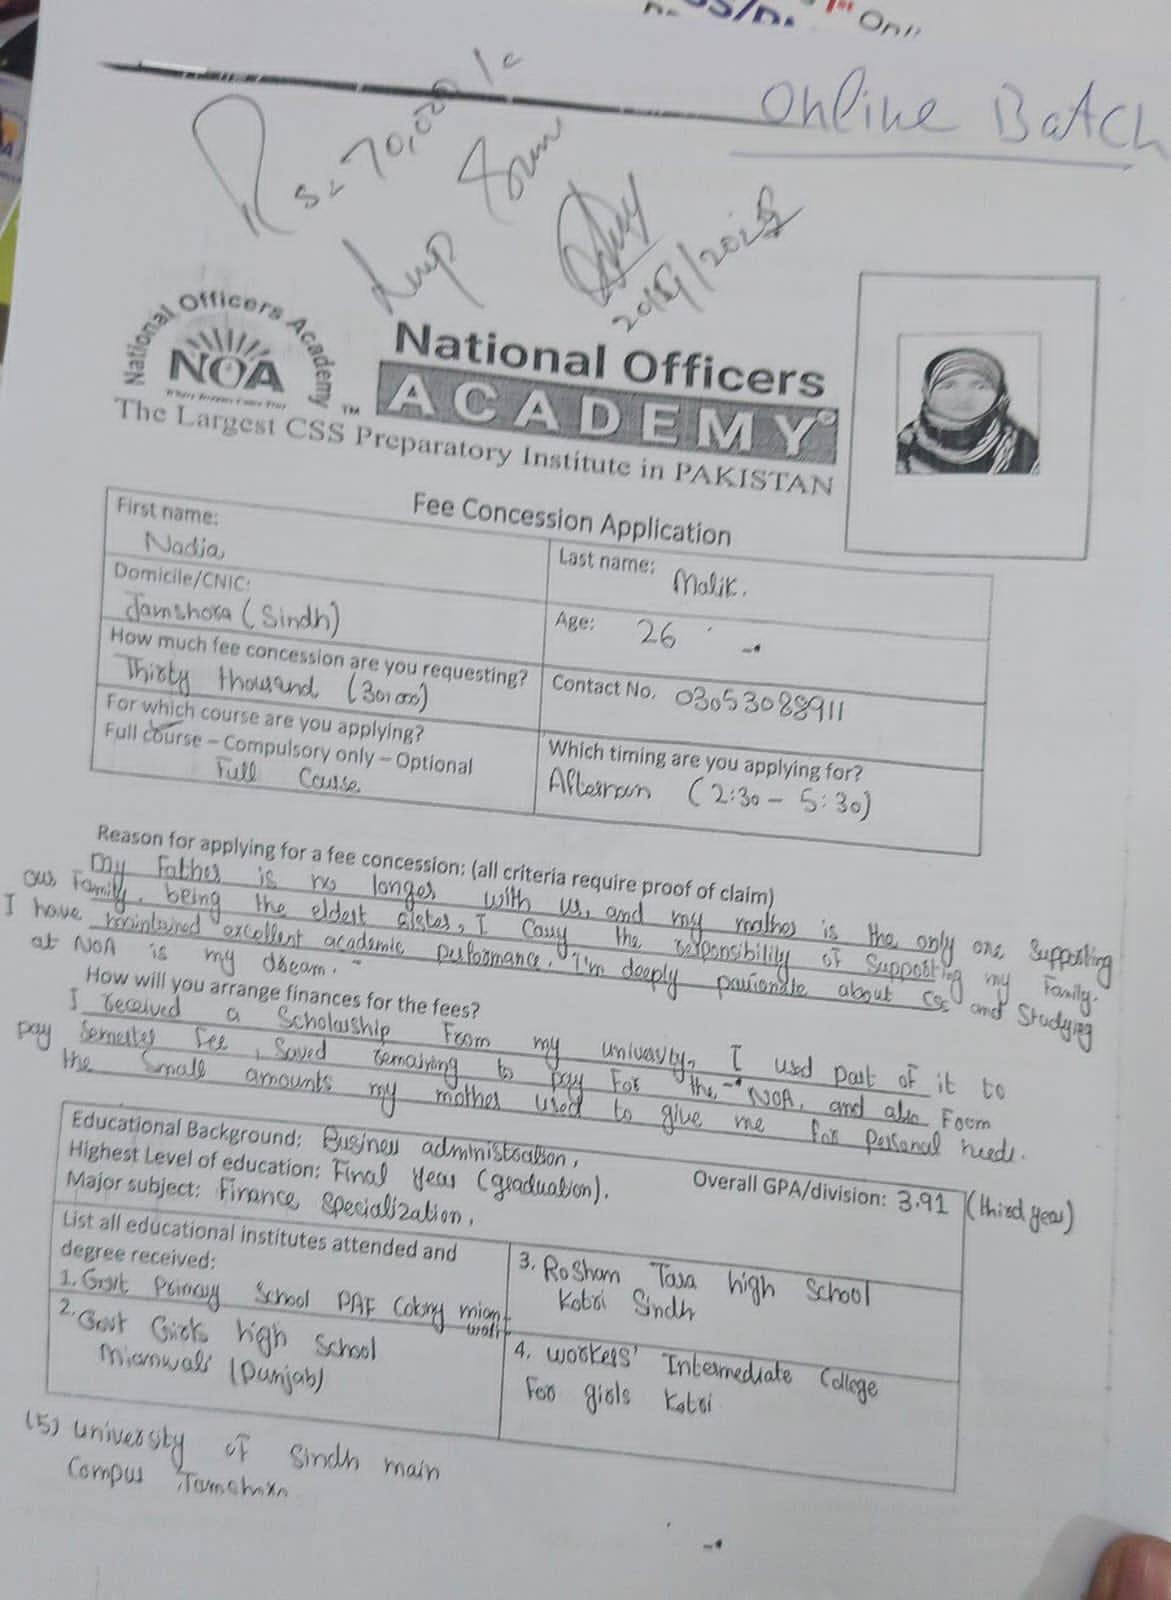 1st Onli
Online Batch
Rs= 70,000/=
Lump Sum
National Officers Academy
NOA
National Officers
ACADEMY
The Largest CSS Preparatory Institute in PAKISTAN
Fee Concession Application
First name:
Nadia
Last name:
Malik.
Domicile/CNIC:
Jamshoro (Sindh)
Age: 26
How much fee concession are you requesting?
Thirty thousand (30,000)
Contact No. 03053088911
For which course are you applying?
Full course – Compulsory only – Optional
Full Course
Which timing are you applying for?
Afternoon (2:30 – 5:30)
Reason for applying for a fee concession: (all criteria require proof of claim)
My Father is no longer with us, and my mother is the only one supporting
our Family. being the eldest sister, I carry the responsibility of supporting my Family.
I have maintained excellent academic performance. I'm deeply passionate about CSS and Studying
at NOA is my dream.
How will you arrange finances for the fees?
I received a Scholarship From my university, I used part of it to
pay Semester Fee, Saved remaining to pay For the NOA. and also From
the Small amounts my mother used to give me for personal needs.
Educational Background: Business administration,
Highest Level of education: Final Year (graduation).
Overall GPA/division: 3.91 (third year)
Major subject: Finance Specialization,
List all educational institutes attended and
degree received:
1. Govt Primary School PAF Colony mianwali
2. Govt Girls high School
Mianwali (Punjab)
3. Roshan Tara high School
Kotri Sindh
4. workers' Intermediate College
For girls Kotri
(5) University of Sindh main
Campus Jamshoro